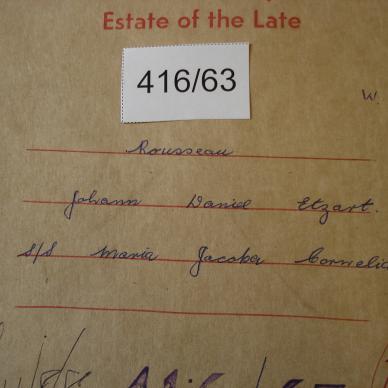 Estate of the Late
416/63
W.
Rousseau
Johann Daniel Etzart.
S/S Maria Jacoba Cornelia